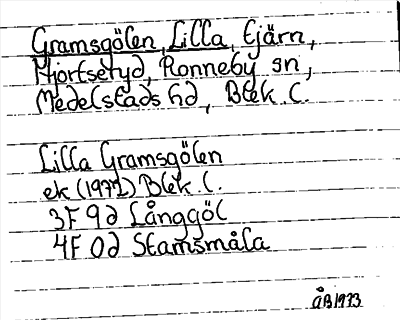 Gramsgölen, Lilla, tjärn,
Hjortseryd, Ronneby sn,
Medelstads hd, Blek. l.
Lilla Gramsgölen
ek (1971) Blek. l.
3F 9d Långgöl
4F 0d Stamsmåla
ÅB 1973